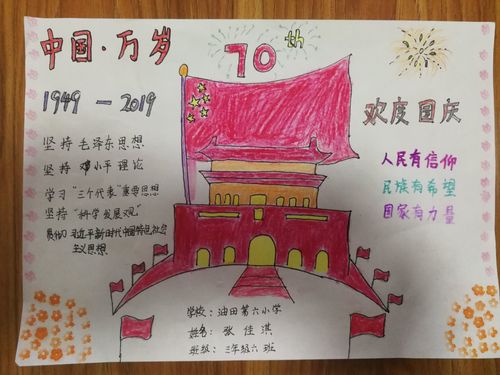 中国·万岁
70th
1949 — 2019
欢度国庆
坚持毛泽东思想
坚持邓小平理论
学习“三个代表”重要思想
坚持“科学发展观”
贯彻习近平新时代中国特色社会
主义思想
人民有信仰
民族有希望
国家有力量
学校:油田第六小学
姓名:张佳淇
班级:三年级六班